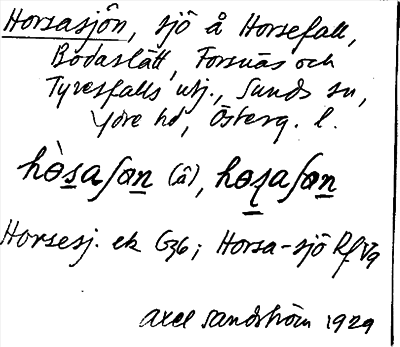 Horsasjön, sjö å Horsefall,
Bodaslätt, Forsnäs och
Tyresfalls utj., Sunds sn,
Ydre hd, Österg. l.
hɵ̀s̲aʃøn̲ (å), hɵʂ̲aʃøn̲
Horsesj. ek G36; Horsa-sjö Rf Vg
Axel Sandström 1929